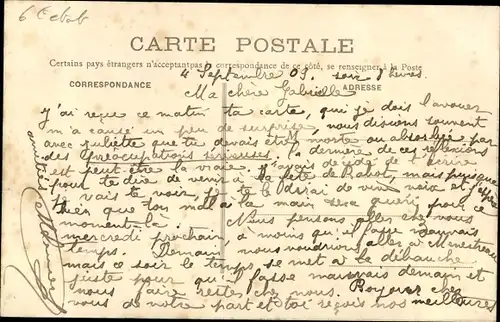 CARTE POSTALE
Certains pays étrangers n'acceptant pas la correspondance de ce côté, se renseigner à la Poste
CORRESPONDANCE
ADRESSE
4 Septembre 05. soir heures.
Ma chère Gabrielle
J'ai reçu ce matin ta carte, qui je dois l'avouer
m'a causé un peu de surprise, nous disions souvent
avec Juliette que tu devais être morte ou absorbée par
des préocupations sérieuses, la dernière de ces réflexions
est peut-être la vraie. J'avais décidé de t'écrire
pour te dire de venir à la fête de Rabot, mais puisque
vais te voir, je te dirai de vive voix
que ton mal à la main sera guéri pour ce
moment là. Nous pensons aller chez vous
mercredi prochain, à moins qu'il fasse mauvais
temps. Demain nous voudrions aller à Menestreau
mais ce soir le temps se met à la débauche
juste pour qu'il fasse mauvais demain et
nous faire rester chez nous. Bonjour chez
vous de notre part et toi reçois nos meilleures
amitiés